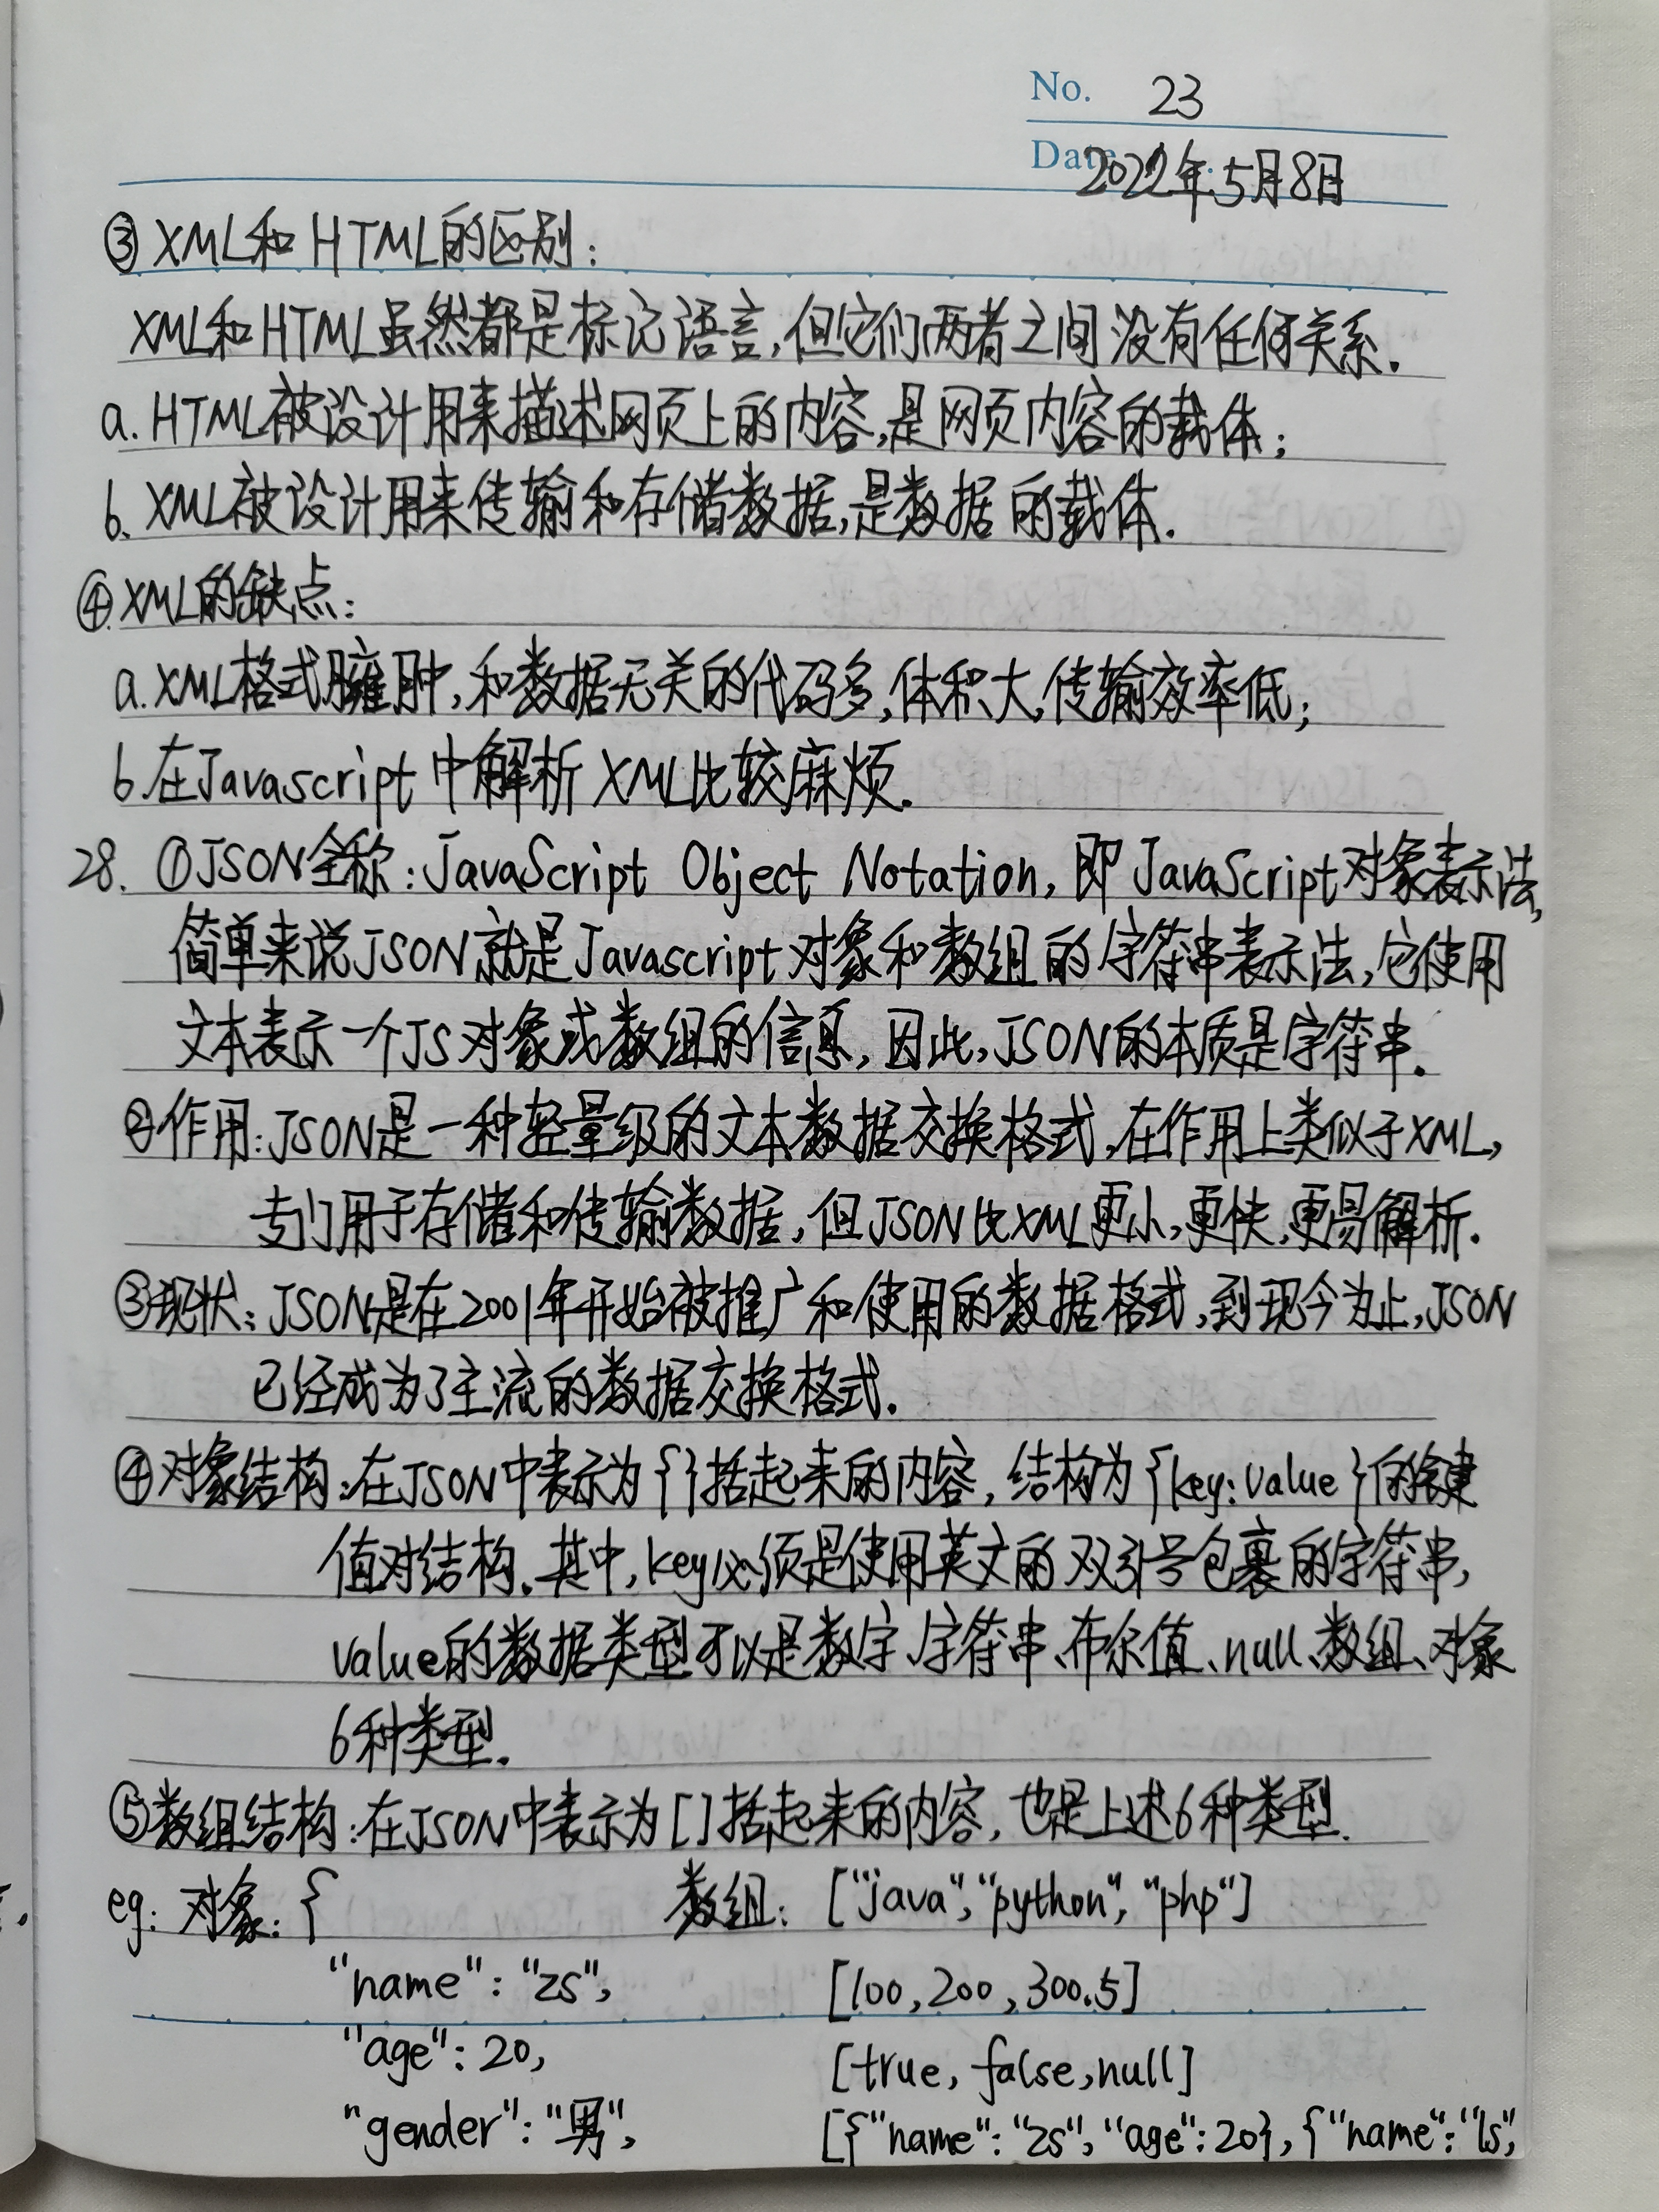 No. 23
Date 2022年5月8日
③XML和HTML的区别：
XML和HTML虽然都是标记语言,但它们两者之间没有任何关系.
a.HTML被设计用来描述网页上的内容,是网页内容的载体;
b.XML被设计用来传输和存储数据,是数据的载体.
④XML的缺点：
a.XML格式臃肿,和数据无关的代码多,体积大,传输效率低;
b.在Javascript中解析XML比较麻烦.
28. ①JSON全称:JavaScript Object Notation,即JavaScript对象表示法,
简单来说JSON就是Javascript对象和数组的字符串表示法,它使用
文本表示一个JS对象或数组的信息,因此,JSON的本质是字符串.
②作用:JSON是一种轻量级的文本数据交换格式,在作用上类似于XML,
专门用于存储和传输数据,但JSON比XML更小,更快,更易解析.
③现状:JSON是在2001年开始被推广和使用的数据格式,到现今为止,JSON
已经成为了主流的数据交换格式.
④对象结构:在JSON中表示为{}括起来的内容,结构为{key:value}的键
值对结构.其中,key必须是使用英文的双引号包裹的字符串,
value的数据类型可以是数字、字符串、布尔值、null、数组、对象
6种类型.
⑤数组结构:在JSON中表示为[]括起来的内容,也是上述6种类型.
eg: 对象:{ 数组: ["java","python","php"]
"name":"zs", [100,200,300.5]
"age":20, [true,false,null]
"gender":"男", [{"name":"zs","age":20},{"name":"ls",